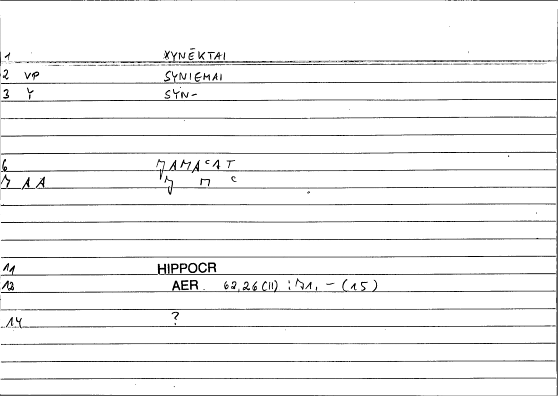 1 XYNĒKTAI
2 VP SYNIEMAI
3 Y SYN-
6
A A
11 HIPPOCR
12 AER. 62,26(11) - (15)
14 ?